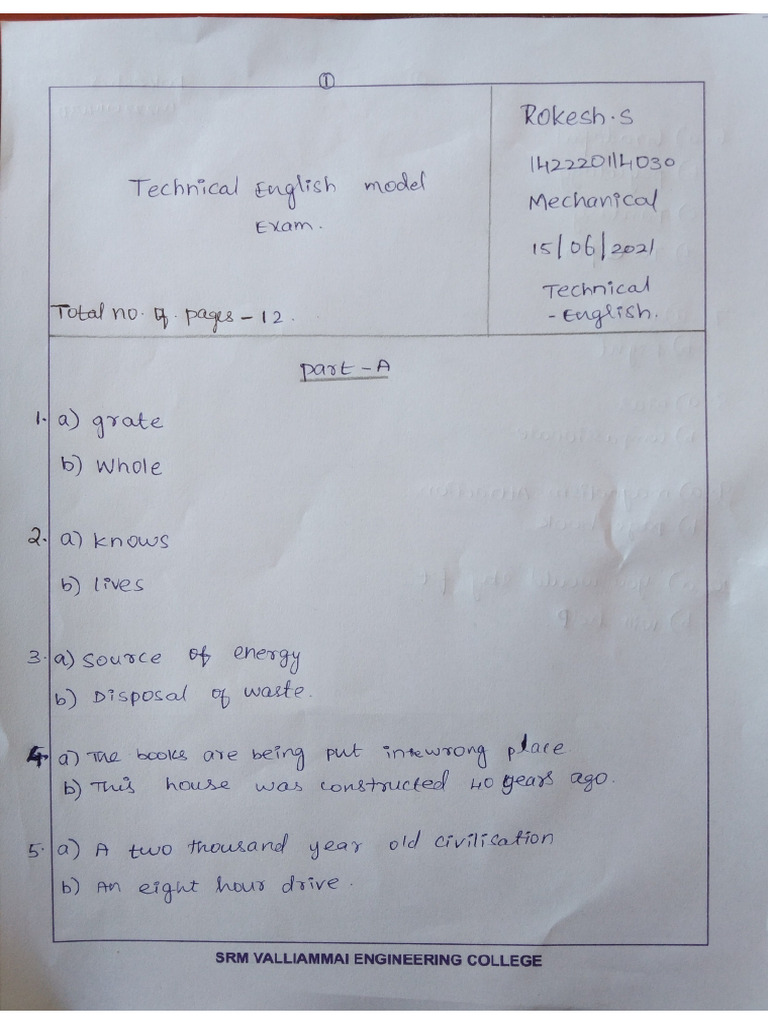 ①
Technical English model
Exam.
Total no. of pages - 12.
Rokesh.S
142220114030
Mechanical
15/06/2021
Technical
- English.
Part - A
1. a) grate
b) Whole
2. a) knows
b) lives
3. a) Source of energy
b) Disposal of waste.
4. a) The books are being put in the wrong place.
b) This house was constructed 40 years ago.
5. a) A two thousand year old civilisation
b) An eight hour drive.
SRM VALLIAMMAI ENGINEERING COLLEGE